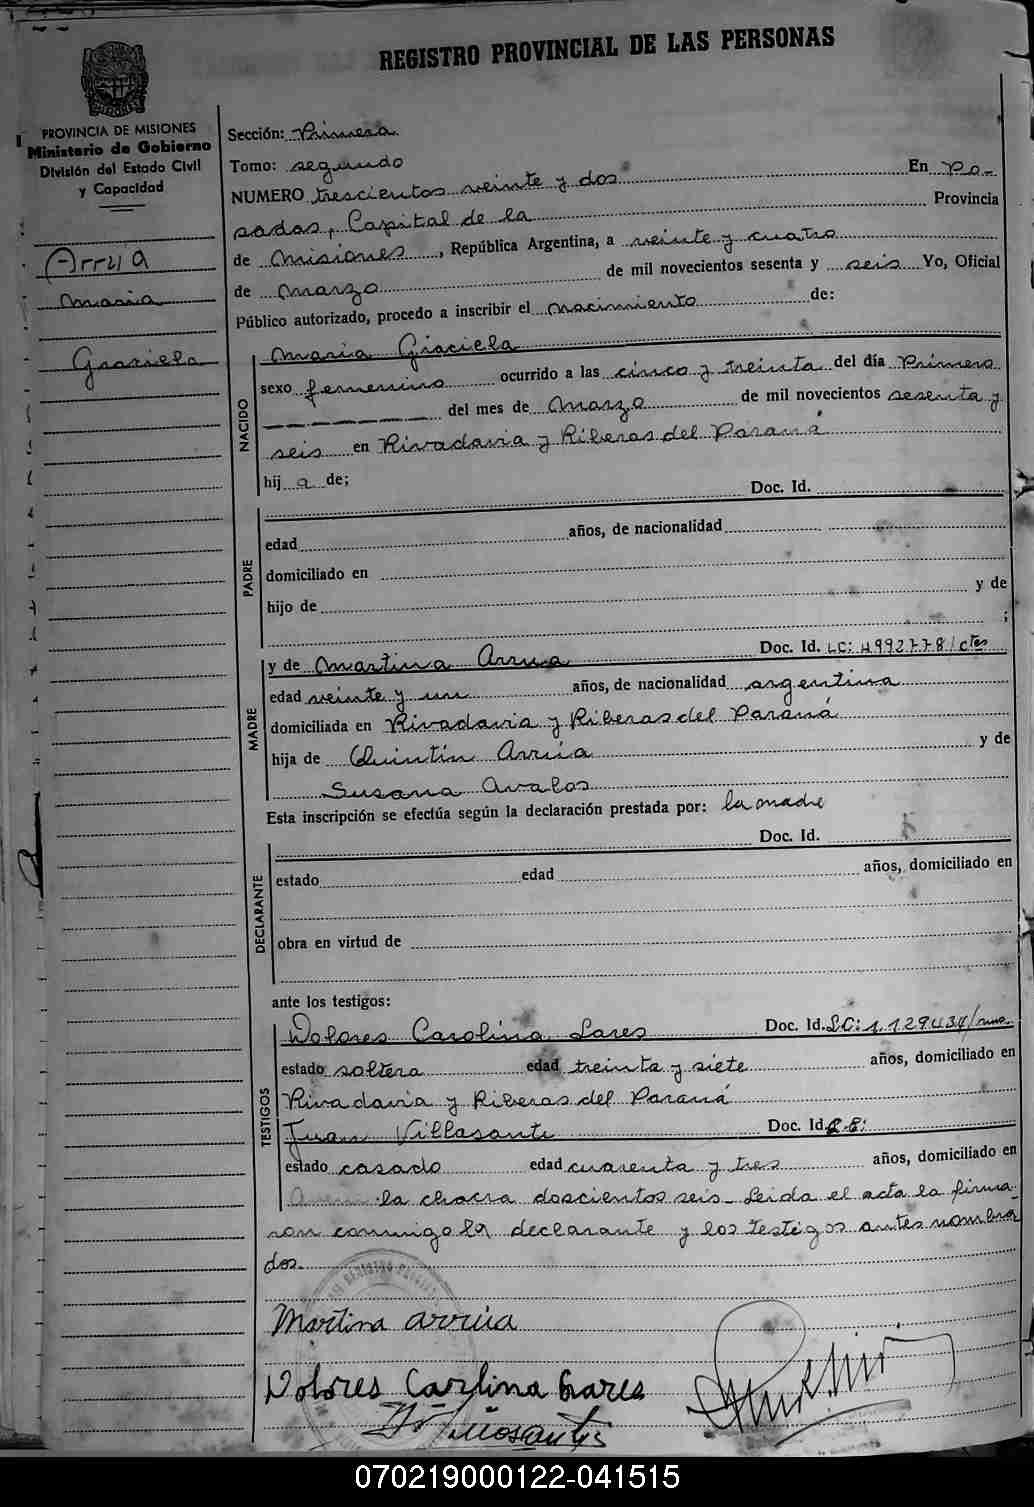 REGISTRO PROVINCIAL DE LAS PERSONAS
PROVINCIA DE MISIONES
Ministerio de Gobierno
División del Estado Civil
y Capacidad
Arrua
Maria
Grasiela
Sección: Primera
Tomo: segundo
NUMERO trescientos veinte y dos En Po-
sadas, Capital de la Provincia
de Misiones, República Argentina, a veinte y cuatro
de Marzo de mil novecientos sesenta y seis Yo, Oficial
Público autorizado, procedo a inscribir el nacimiento de:
NACIDO
Maria Graciela
sexo femenino ocurrido a las cinco y treinta del día Primero
del mes de Marzo de mil novecientos sesenta y
seis en Rivadavia y Riberas del Paraná
hij a de;
PADRE
Doc. Id.
edad años, de nacionalidad
domiciliado en
hijo de y de
;
MADRE
y de Martina Arrua Doc. Id. LC: 4992778/ctes
edad veinte y un años, de nacionalidad argentina
domiciliada en Rivadavia y Riberas del Paraná
hija de Quintín Arrúa y de
Susana Avalos
Esta inscripción se efectúa según la declaración prestada por: la madre
DECLARANTE
Doc. Id.
estado edad años, domiciliado en
obra en virtud de
ante los testigos:
TESTIGOS
Dolores Carolina Lares Doc. Id. LC: 1.129434/mns.
estado soltera edad treinta y siete años, domiciliado en
Rivadavia y Riberas del Paraná
Juan Villasanti Doc. Id.
estado casado edad cuarenta y tres años, domiciliado en
la chacra doscientos seis_ Leida el acta la firma-
ron conmigo la declarante y los testigos antes nombra
dos.
Martina Arrúa
Dolores Carolina Lares
070219000122-041515